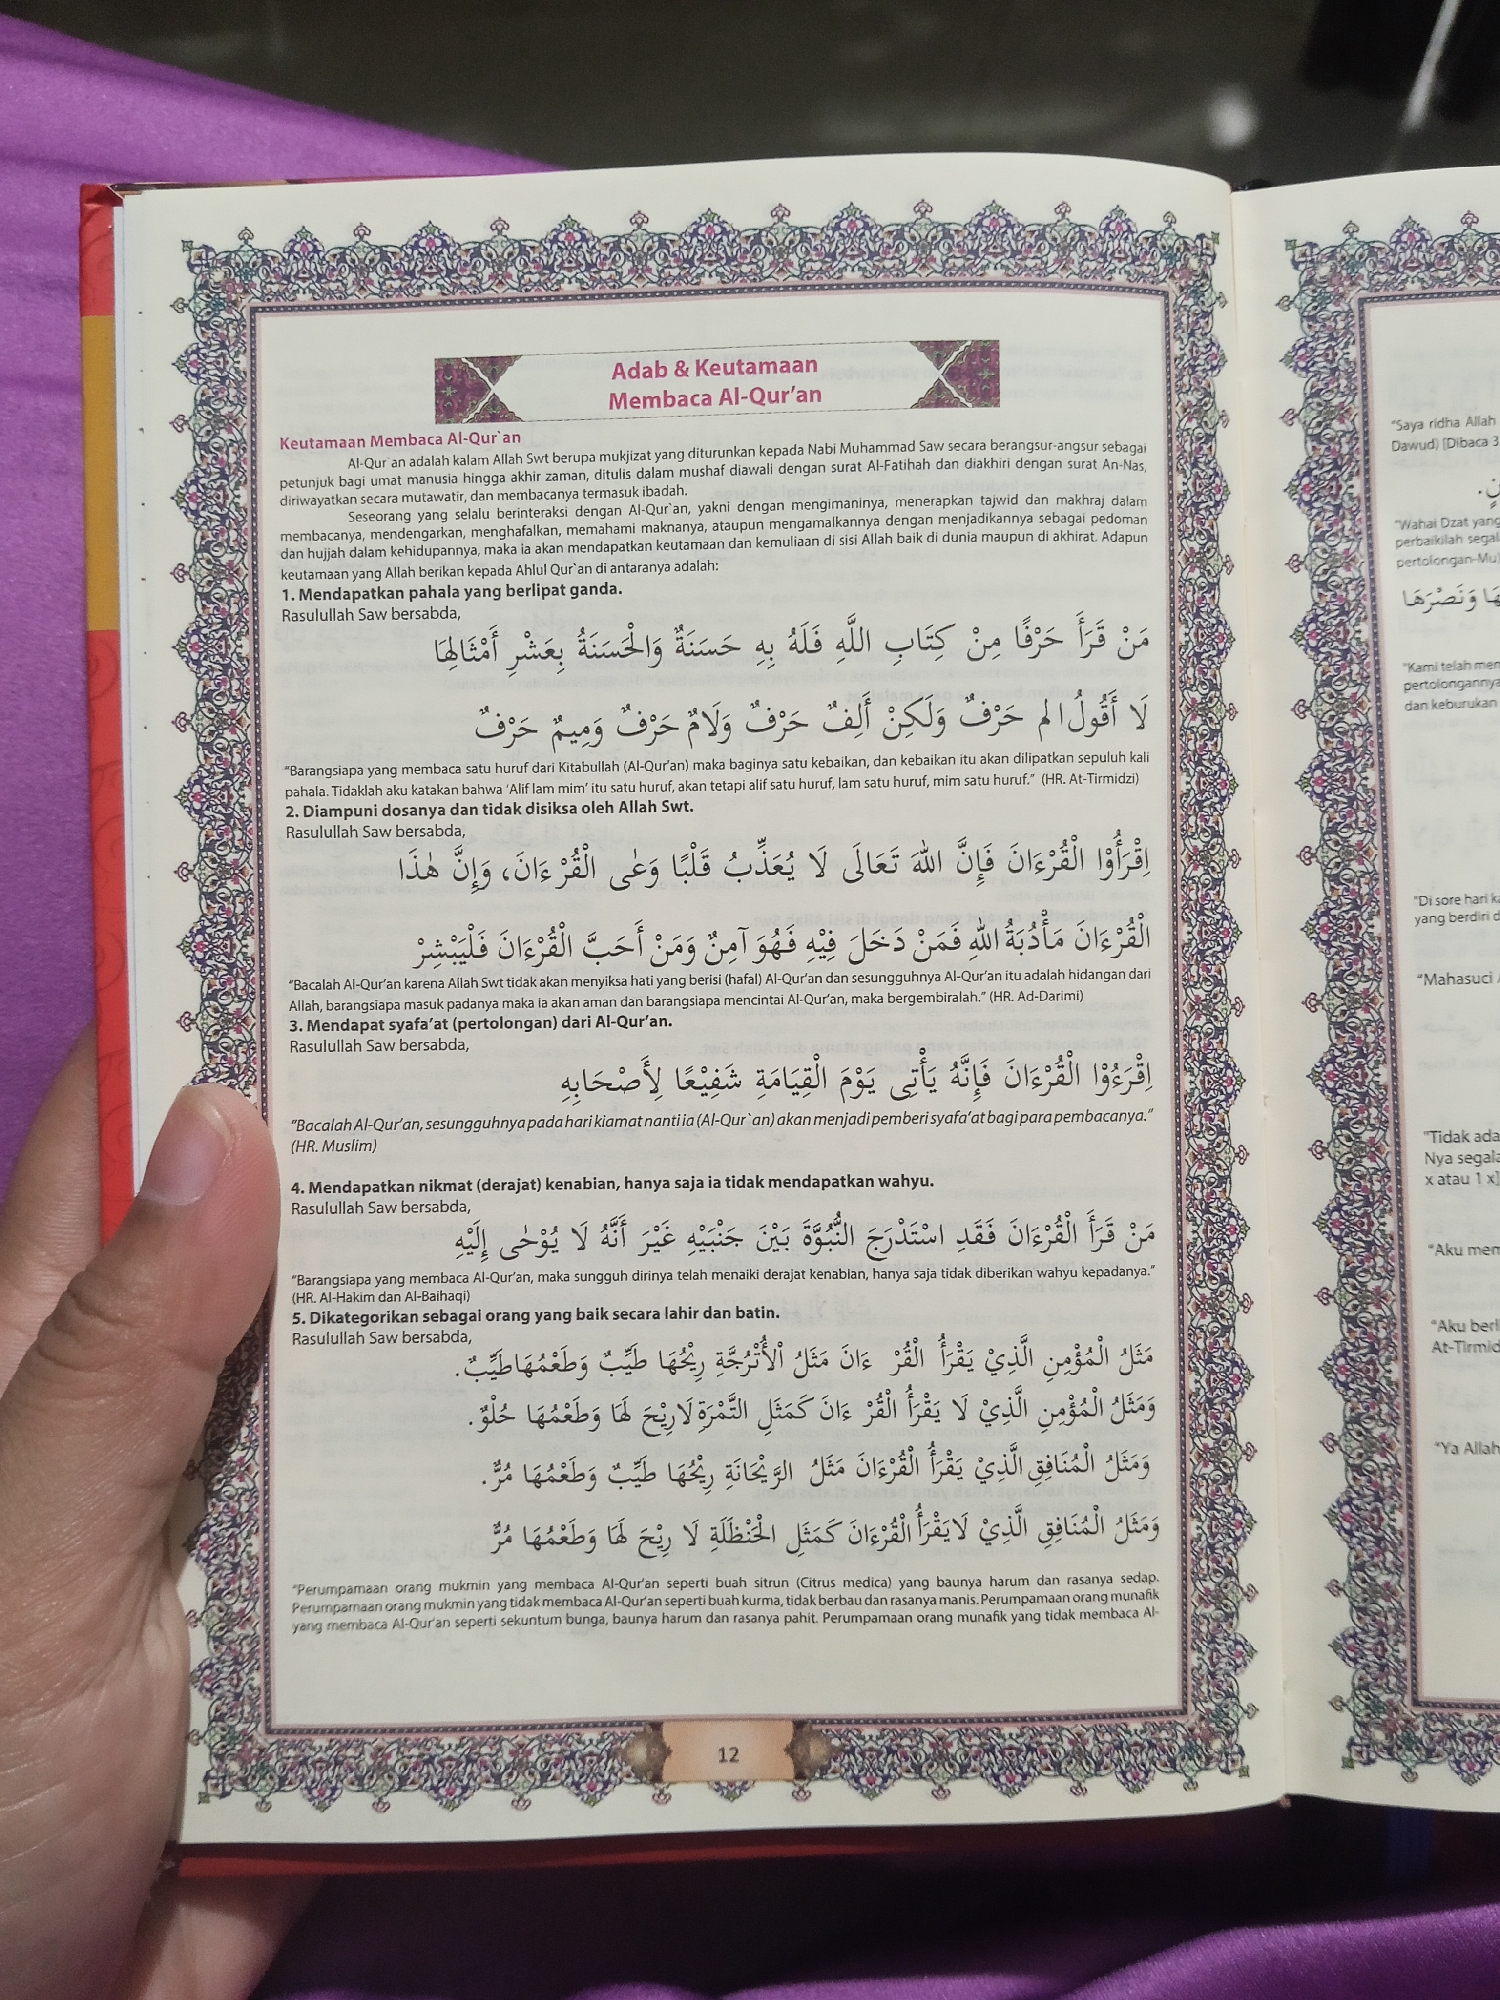 Adab & Keutamaan
Membaca Al-Qur'an
Keutamaan Membaca Al-Qur`an
Al-Qur`an adalah kalam Allah Swt berupa mukjizat yang diturunkan kepada Nabi Muhammad Saw secara berangsur-angsur sebagai
petunjuk bagi umat manusia hingga akhir zaman, ditulis dalam mushaf diawali dengan surat Al-Fatihah dan diakhiri dengan surat An-Nas,
diriwayatkan secara mutawatir, dan membacanya termasuk ibadah.
Seseorang yang selalu berinteraksi dengan Al-Qur`an, yakni dengan mengimaninya, menerapkan tajwid dan makhraj dalam
membacanya, mendengarkan, menghafalkan, memahami maknanya, ataupun mengamalkannya dengan menjadikannya sebagai pedoman
dan hujjah dalam kehidupannya, maka ia akan mendapatkan keutamaan dan kemuliaan di sisi Allah baik di dunia maupun di akhirat. Adapun
keutamaan yang Allah berikan kepada Ahlul Qur`an di antaranya adalah:
1. Mendapatkan pahala yang berlipat ganda.
Rasulullah Saw bersabda,
مَنْ قَرَأَ حَرْفًا مِنْ كِتَابِ اللَّهِ فَلَهُ بِهِ حَسَنَةٌ وَالْحَسَنَةُ بِعَشْرِ أَمْثَالِهَا
لَا أَقُولُ الم حَرْفٌ وَلَكِنْ أَلِفٌ حَرْفٌ وَلَامٌ حَرْفٌ وَمِيمٌ حَرْفٌ
"Barangsiapa yang membaca satu huruf dari Kitabullah (Al-Qur'an) maka baginya satu kebaikan, dan kebaikan itu akan dilipatkan sepuluh kali
pahala. Tidaklah aku katakan bahwa 'Alif lam mim' itu satu huruf, akan tetapi alif satu huruf, lam satu huruf, mim satu huruf." (HR. At-Tirmidzi)
2. Diampuni dosanya dan tidak disiksa oleh Allah Swt.
Rasulullah Saw bersabda,
اِقْرَأُوْا الْقُرْءَانَ فَإِنَّ اللهَ تَعَالَى لَا يُعَذِّبُ قَلْبًا وَعٰى الْقُرْءَانَ، وَإِنَّ هٰذَا
الْقُرْءَانَ مَأْدُبَةُ اللهِ فَمَنْ دَخَلَ فِيْهِ فَهُوَ آمِنٌ وَمَنْ أَحَبَّ الْقُرْءَانَ فَلْيَبْشِرْ
"Bacalah Al-Qur'an karena Allah Swt tidak akan menyiksa hati yang berisi (hafal) Al-Qur'an dan sesungguhnya Al-Qur'an itu adalah hidangan dari
Allah, barangsiapa masuk padanya maka ia akan aman dan barangsiapa mencintai Al-Qur'an, maka bergembiralah." (HR. Ad-Darimi)
3. Mendapat syafa'at (pertolongan) dari Al-Qur'an.
Rasulullah Saw bersabda,
اِقْرَءُوْا الْقُرْءَانَ فَإِنَّهُ يَأْتِى يَوْمَ الْقِيَامَةِ شَفِيْعًا لِأَصْحَابِهِ
"Bacalah Al-Qur'an, sesungguhnya pada hari kiamat nanti ia (Al-Qur`an) akan menjadi pemberi syafa'at bagi para pembacanya."
(HR. Muslim)
4. Mendapatkan nikmat (derajat) kenabian, hanya saja ia tidak mendapatkan wahyu.
Rasulullah Saw bersabda,
مَنْ قَرَأَ الْقُرْءَانَ فَقَدِ اسْتَدْرَجَ النُّبُوَّةَ بَيْنَ جَنْبَيْهِ غَيْرَ أَنَّهُ لَا يُوْحٰى إِلَيْهِ
"Barangsiapa yang membaca Al-Qur'an, maka sungguh dirinya telah menaiki derajat kenabian, hanya saja tidak diberikan wahyu kepadanya."
(HR. Al-Hakim dan Al-Baihaqi)
5. Dikategorikan sebagai orang yang baik secara lahir dan batin.
Rasulullah Saw bersabda,
مَثَلُ الْمُؤْمِنِ الَّذِيْ يَقْرَأُ الْقُرْ ءَانَ مَثَلُ الْأُتْرُجَّةِ رِيْحُهَا طَيِّبٌ وَطَعْمُهَاطَيِّبٌ.
وَمَثَلُ الْمُؤْمِنِ الَّذِيْ لَا يَقْرَأُ الْقُرْ ءَانَ كَمَثَلِ التَّمْرَةِ لَارِيْحَ لَهَا وَطَعْمُهَا حُلْوٌ.
وَمَثَلُ الْمُنَافِقِ الَّذِيْ يَقْرَأُ الْقُرْءَانَ مَثَلُ الرَّيْحَانَةِ رِيْحُهَا طَيِّبٌ وَطَعْمُهَا مُرٌّ.
وَمَثَلُ الْمُنَافِقِ الَّذِيْ لَايَقْرَأُ الْقُرْءَانَ كَمَثَلِ الْحَنْظَلَةِ لَا رِيْحَ لَهَا وَطَعْمُهَا مُرٌّ
"Perumpamaan orang mukmin yang membaca Al-Qur'an seperti buah sitrun (Citrus medica) yang baunya harum dan rasanya sedap.
Perumpamaan orang mukmin yang tidak membaca Al-Qur'an seperti buah kurma, tidak berbau dan rasanya manis. Perumpamaan orang munafik
yang membaca Al-Qur'an seperti sekuntum bunga, baunya harum dan rasanya pahit. Perumpamaan orang munafik yang tidak membaca Al-
12
"Saya ridha Allah
Dawud) [Dibaca 3
"Wahai Dzat yang
perbaikilah segala
pertolongan-Mu
وَنَصْرَهَا
"Kami telah
pertolongannya
dan keburukan
"Di sore hari
yang berdiri
"Mahasuci
"Tidak ada
Nya segala
x atau 1 x]
"Aku
"Aku
At-Tirmid
"Ya Allah